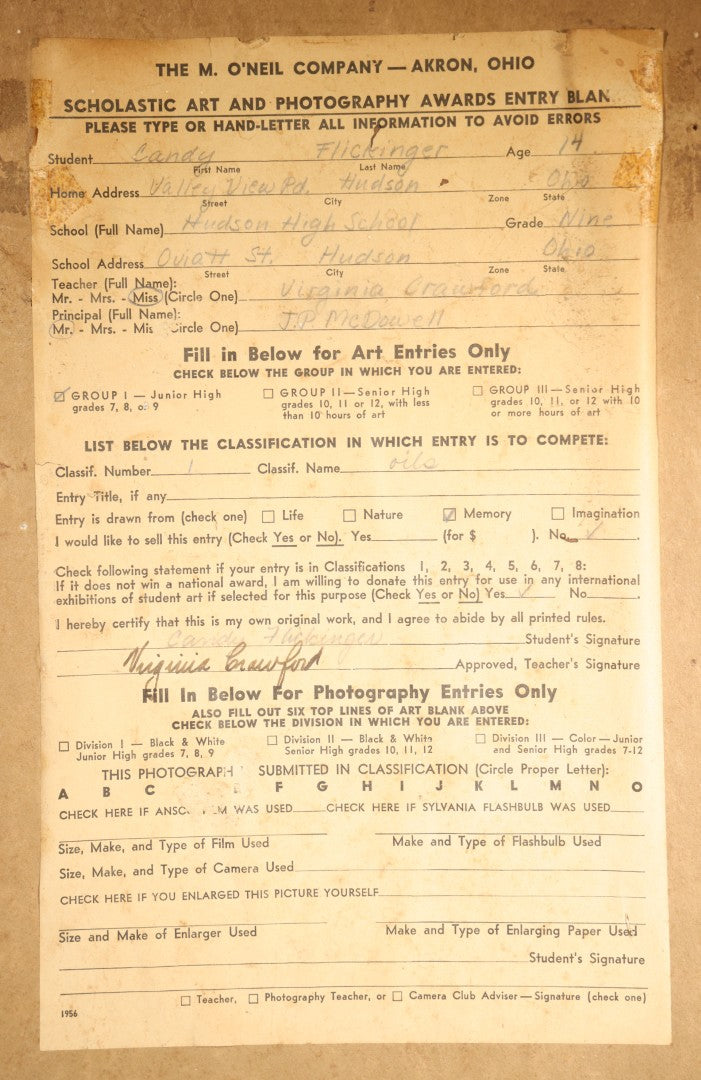 THE M. O'NEIL COMPANY — AKRON, OHIO
SCHOLASTIC ART AND PHOTOGRAPHY AWARDS ENTRY BLAN
PLEASE TYPE OR HAND-LETTER ALL INFORMATION TO AVOID ERRORS
Student Candy Flickinger Age 14
First Name Last Name
Home Address Valley View Rd. Hudson Ohio
Street City Zone State
School (Full Name) Hudson High School Grade Nine
School Address Oviatt St. Hudson Ohio
Street City Zone State
Teacher (Full Name):
Mr. - Mrs. - Miss (Circle One) Virginia Crawford
Principal (Full Name):
Mr. - Mrs. - Mis Circle One) J.P McDowell
Fill in Below for Art Entries Only
CHECK BELOW THE GROUP IN WHICH YOU ARE ENTERED:
☑ GROUP I — Junior High grades 7, 8, or 9
☐ GROUP II — Senior High grades 10, 11 or 12, with less than 10 hours of art
☐ GROUP III — Senior High grades 10, 11, or 12 with 10 or more hours of art
LIST BELOW THE CLASSIFICATION IN WHICH ENTRY IS TO COMPETE:
Classif. Number 1 Classif. Name oils
Entry Title, if any
Entry is drawn from (check one) ☐ Life ☐ Nature ☑ Memory ☐ Imagination
I would like to sell this entry (Check Yes or No). Yes (for $ ). No ✓.
Check following statement if your entry is in Classifications 1, 2, 3, 4, 5, 6, 7, 8:
If it does not win a national award, I am willing to donate this entry for use in any international
exhibitions of student art if selected for this purpose (Check Yes or No) Yes ✓ No .
I hereby certify that this is my own original work, and I agree to abide by all printed rules.
Candy Flickinger Student's Signature
Virginia Crawford Approved, Teacher's Signature
Fill In Below For Photography Entries Only
ALSO FILL OUT SIX TOP LINES OF ART BLANK ABOVE
CHECK BELOW THE DIVISION IN WHICH YOU ARE ENTERED:
☐ Division I — Black & White Junior High grades 7, 8, 9
☐ Division II — Black & White Senior High grades 10, 11, 12
☐ Division III — Color — Junior and Senior High grades 7-12
THIS PHOTOGRAPH SUBMITTED IN CLASSIFICATION (Circle Proper Letter):
A B C F G H I J K L M N O
CHECK HERE IF ANSC M WAS USED CHECK HERE IF SYLVANIA FLASHBULB WAS USED
Size, Make, and Type of Film Used Make and Type of Flashbulb Used
Size, Make, and Type of Camera Used
CHECK HERE IF YOU ENLARGED THIS PICTURE YOURSELF
Size and Make of Enlarger Used Make and Type of Enlarging Paper Used
Student's Signature
☐ Teacher, ☐ Photography Teacher, or ☐ Camera Club Adviser — Signature (check one)
1956